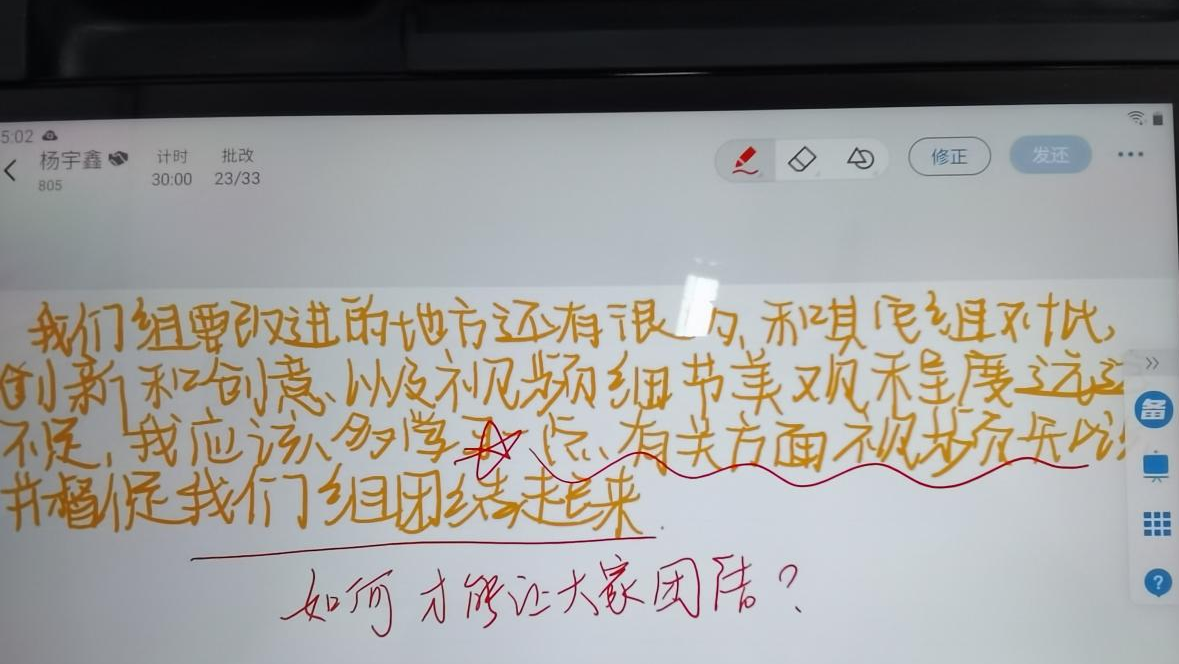 5:02
杨宇鑫 计时 批改
805 30:00 23/33
修正 发还
我们组要改进的地方还有很 内,和其它组对比,
创新和创意、以及视频细节美观程度远远
不足,我应该多学 点 有关方面视频知识
并督促我们组团结起来.
如何才能让大家团结?
备
?